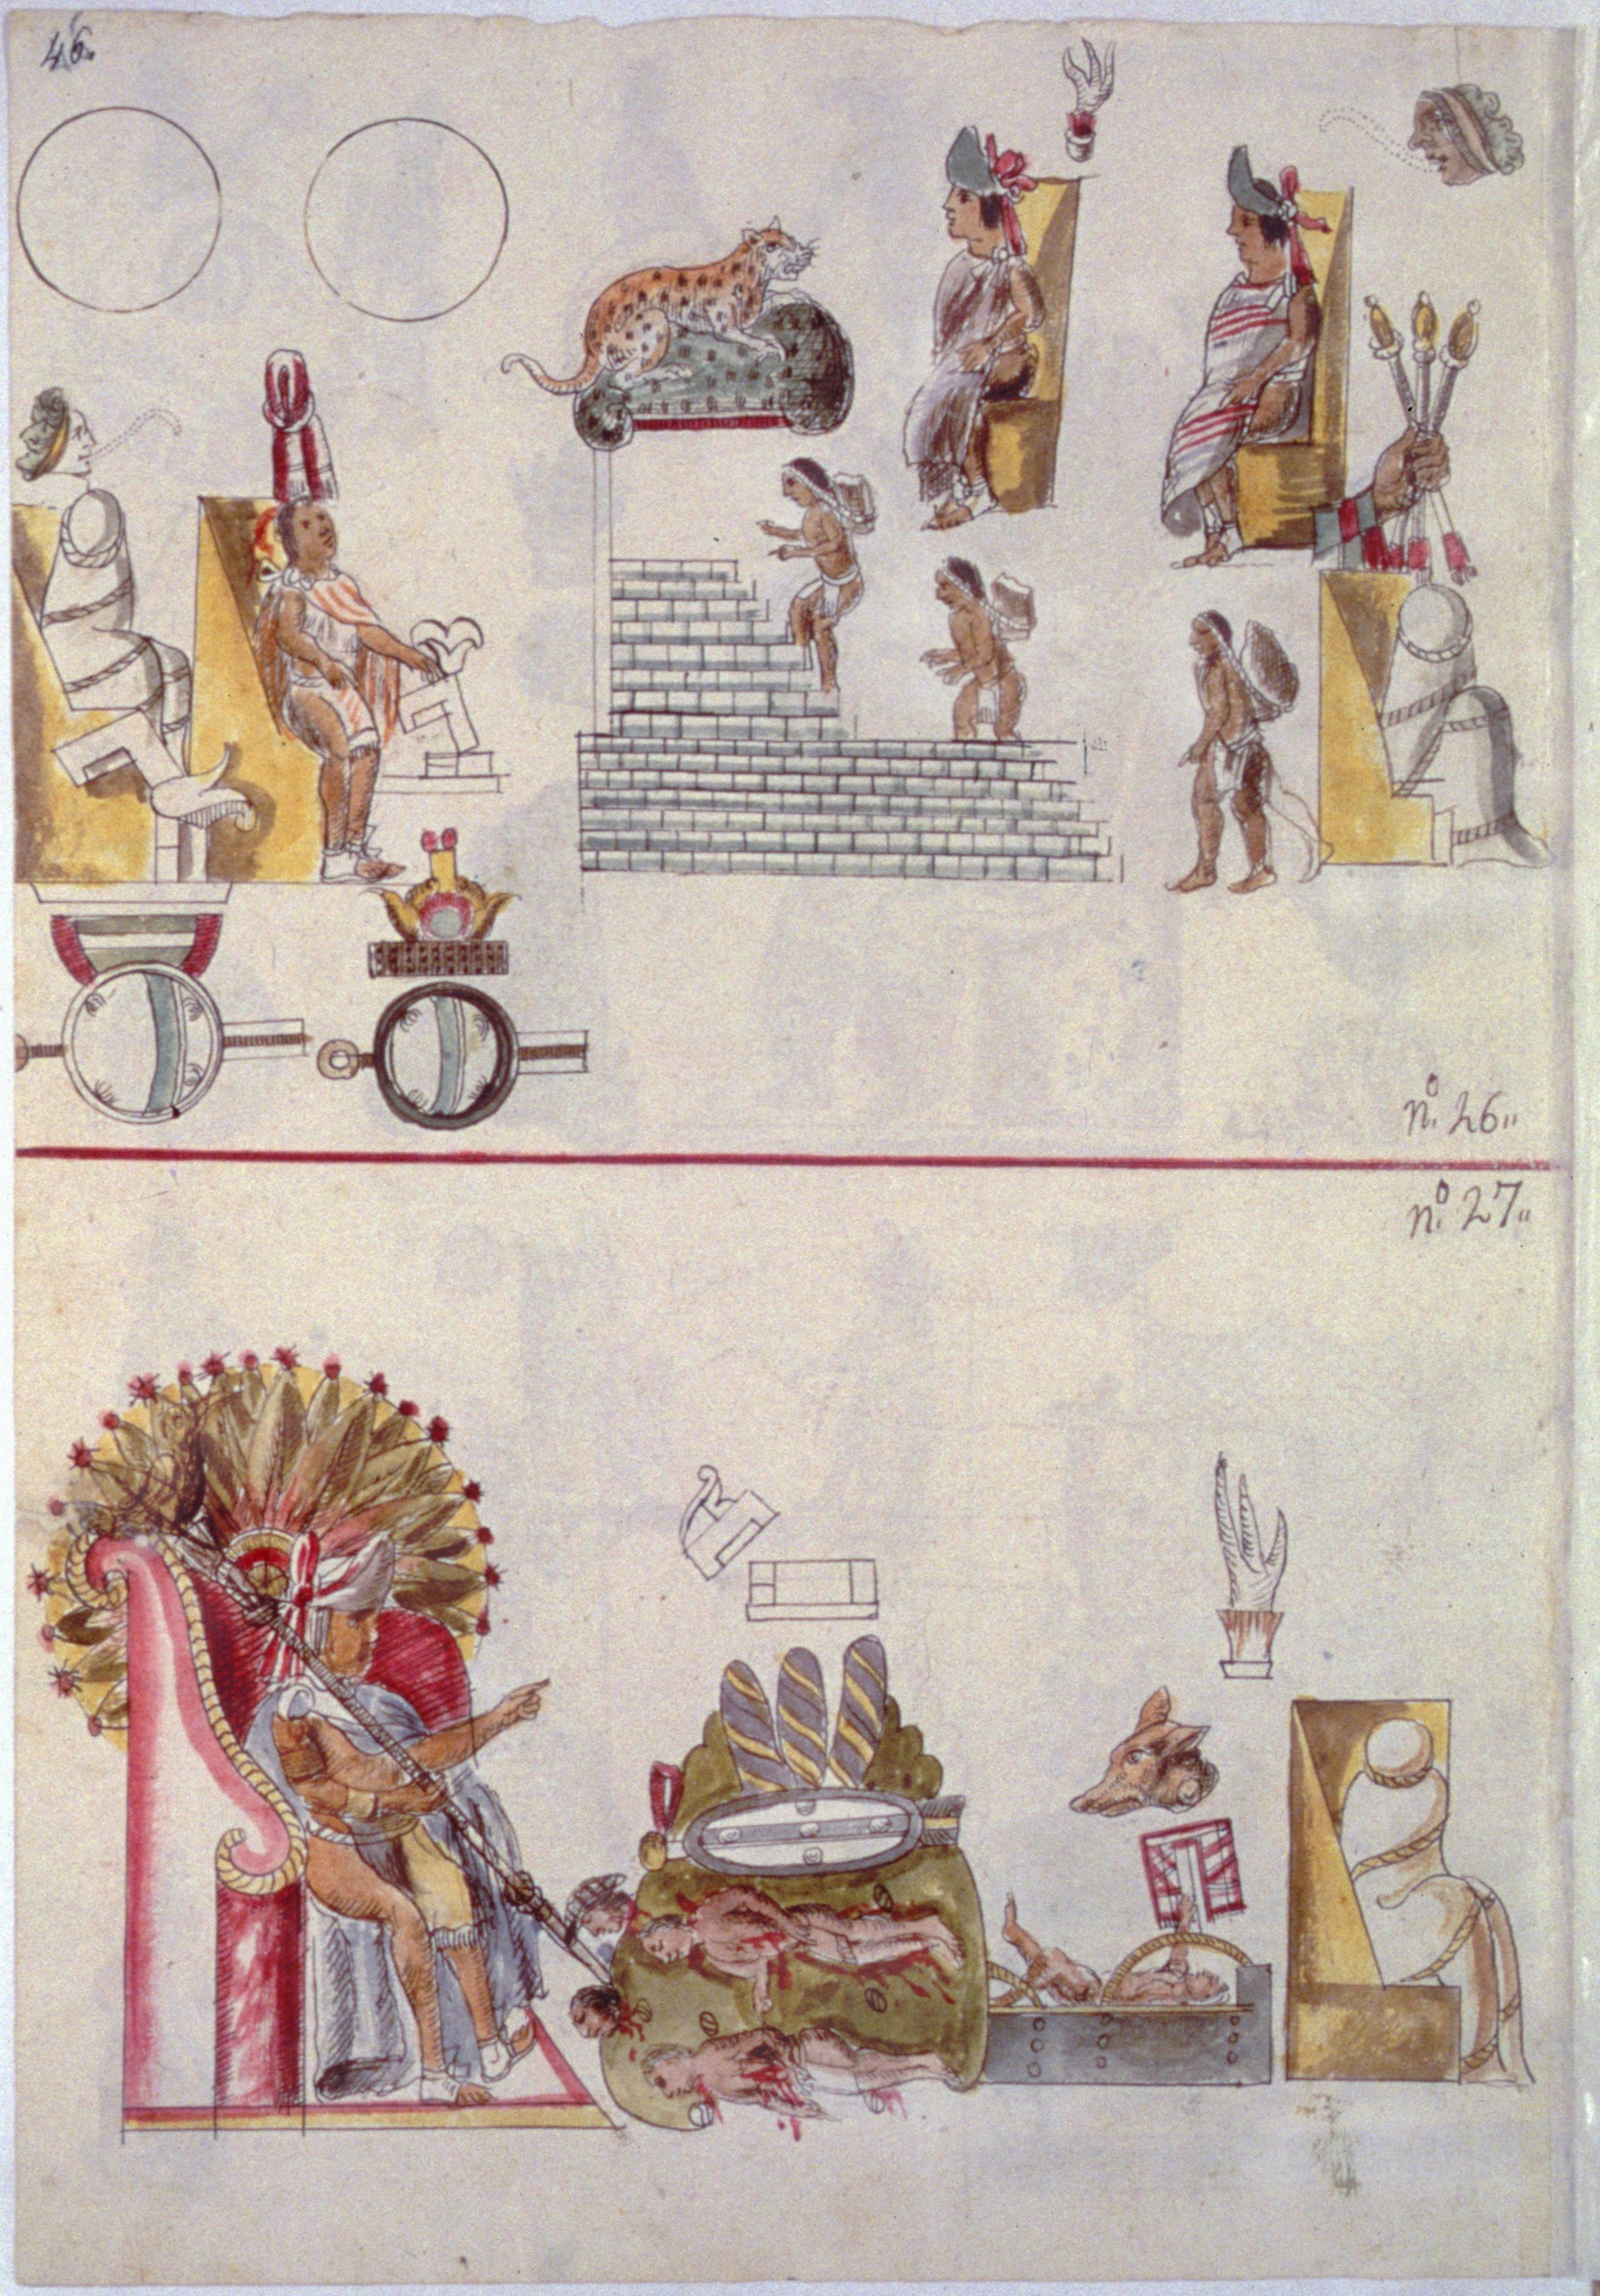 46.
nº. 26"
nº. 27"